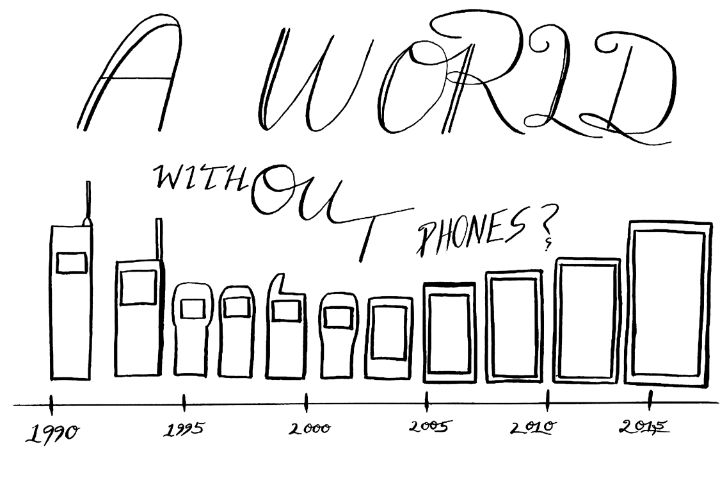 A WORLD
WITHOUT
PHONES?
1990 1995 2000 2005 2010 2015